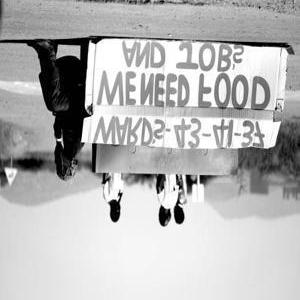 WARDS-43-41-37
WE NEED FOOD
AND JOBS